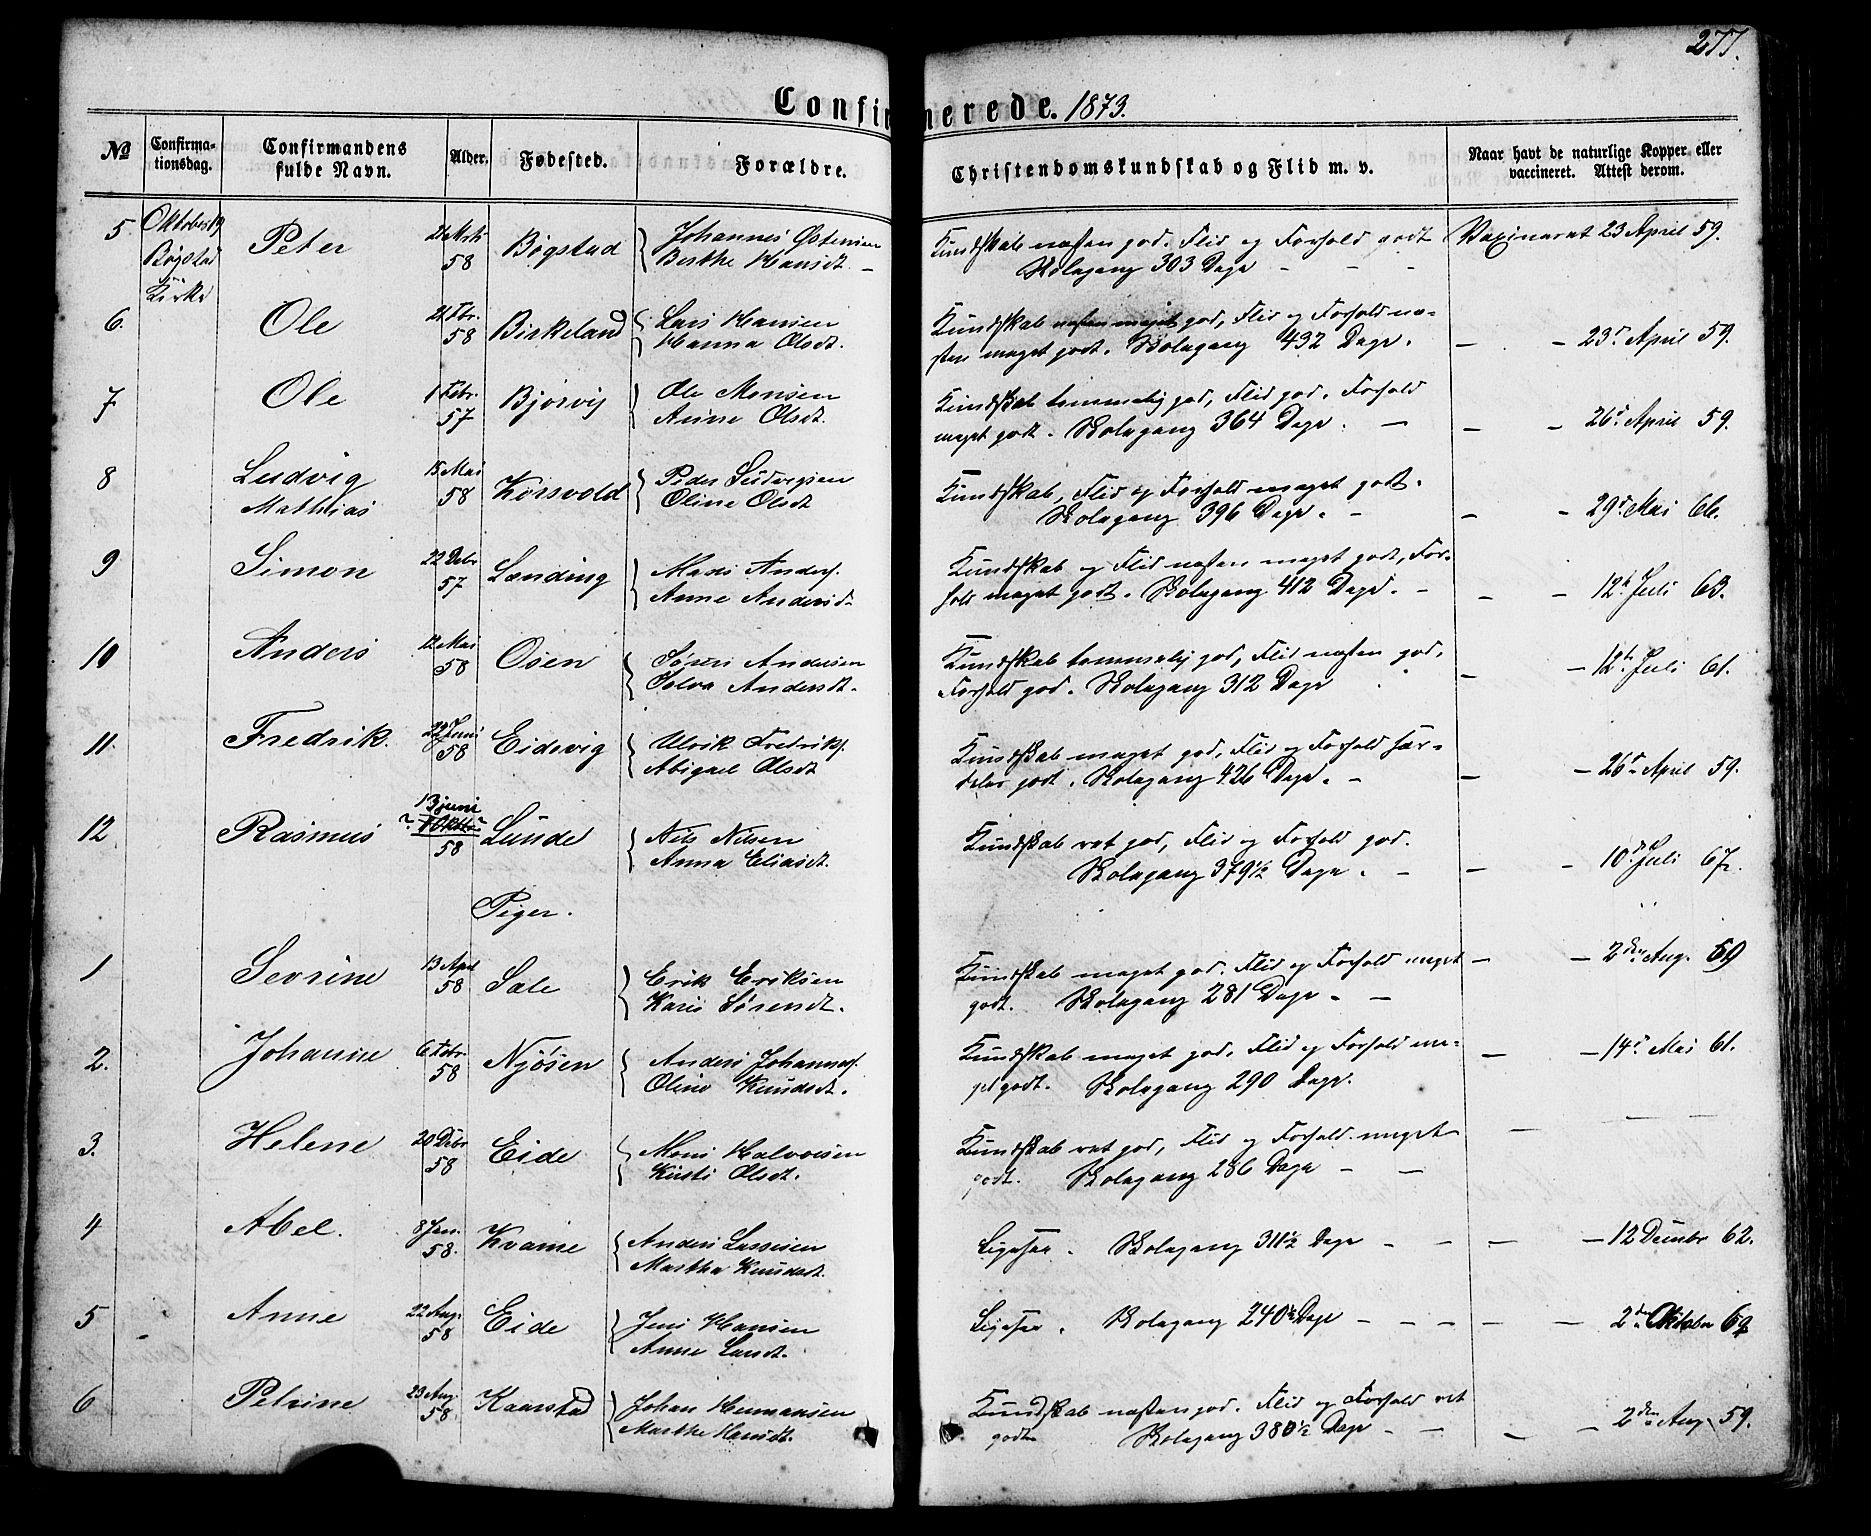 277.
Confirmerede. 1873.
No
Confirmationsdag.
Confirmandens fulde Navn.
Alder.
Fødested.
Forældre.
Christendomskundskab og Flid m. v.
Naar havt de naturlige Kopper eller vaccineret. Attest derom.
5 Oktober 19 Bøgstad Kirke Peter 58 Bøgstad Johannes Østensen
Berthe Hansdt.
Kundskab næsten god. Flid og Forhold godt
Skolegang 303 Dage
Vaxineret 23 April 59.
6. Ole 21 Fbr. 58 Birkeland Lars Hansen
Hanna Olsdt.
Kundskab næsten meget god, Flid og Forhold næ-
sten meget godt. Skolegang 432 Dage.
23 April 59.
7 Ole 1 Febr. 57 Bjørvig Ole Monsen
Anne Olsdt.
Kundskab temmelig god, Flid god. Forhold
meget godt. Skolegang 364 Dage.
26 April 59.
8 Ludvig Mathias 15 Mai 58 Korsvold Peder Ludvigsen
Oline Olsdt
Kundskab, Flid og Forhold meget godt.
Skolegang 396 Dage.
29 Mai 66.
9 Simon 22 Debr 57 Lænding Mads Anders.
Anne Andersd
Kundskab og Flid næsten meget godt, For-
hold meget godt. Skolegang 412 Dage.
12 Juli 63.
10 Anders 12 Mai 58 Osen Søren Andersen
Andersdt.
Kundskab temmelig god, Flid næsten god,
Forhold god. Skolegang 312 Dage
12te Juli 61.
11. Fredrik. 22 Juni 58 Eidevig Ulrik Fredriks.
Abigael Olsdt
Kundskab meget god, Flid og Forhold sær-
deles godt. Skolegang 426 Dage.
26 April 59.
12 Rasmus 13 juni 58 Lunde Nils Nilsen
Anna Eliasdt.
Kundskab ret god, Flid og Forhold god.
Skolegang 379½ Dage.
10 Juli 67.
Piger.
1 Sevrine 13 April 58 Sæle Erik Eriksen
Kari Sørensdt.
Kundskab meget god. Flid og Forhold meget
godt. Skolegang 281 Dage.
2den Aug. 59
2. Johanne 6 Febr. 58 Nyøsen Anders Johannes.
Oline Knudsdt.
Kundskab meget god. Flid og Forhold me-
get godt. Skolegang 290 Dage.
14 Mai 61.
3. Helene 20 Debr 58 Eide Mons Halvorsen
Kirsti Olsdt.
Kundskab ret god, Flid og Forhold meget
godt. Skolegang 286 Dage
4 Abel. 8 Jan. 58. Kvame Anders Lassesen
Martha Knudsdt.
Ligesaa. Skolegang 311½ Dage
12 Dcmbr 62.
5 Anne 22 Aug. 58 Eide Jens Hansen
Anne Larsdt.
Ligesaa. Skolegang 240½ Dage
2den Oktober
6 Petrine 23 Aug. 58 Kaarstad Johan Hermansen
Marthe Hansdt.
Kundskab næsten god. Flid og Forhold ret
godt Skolegang 380½ Dage
2den Aug. 59.